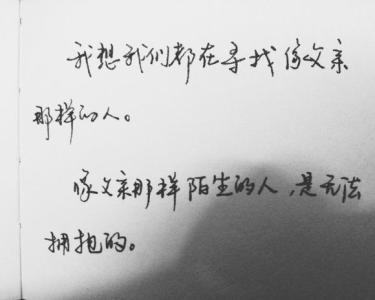 我想我们都在寻找像父亲
那样的人。
像父亲那样陌生的人，是无法
拥抱的。